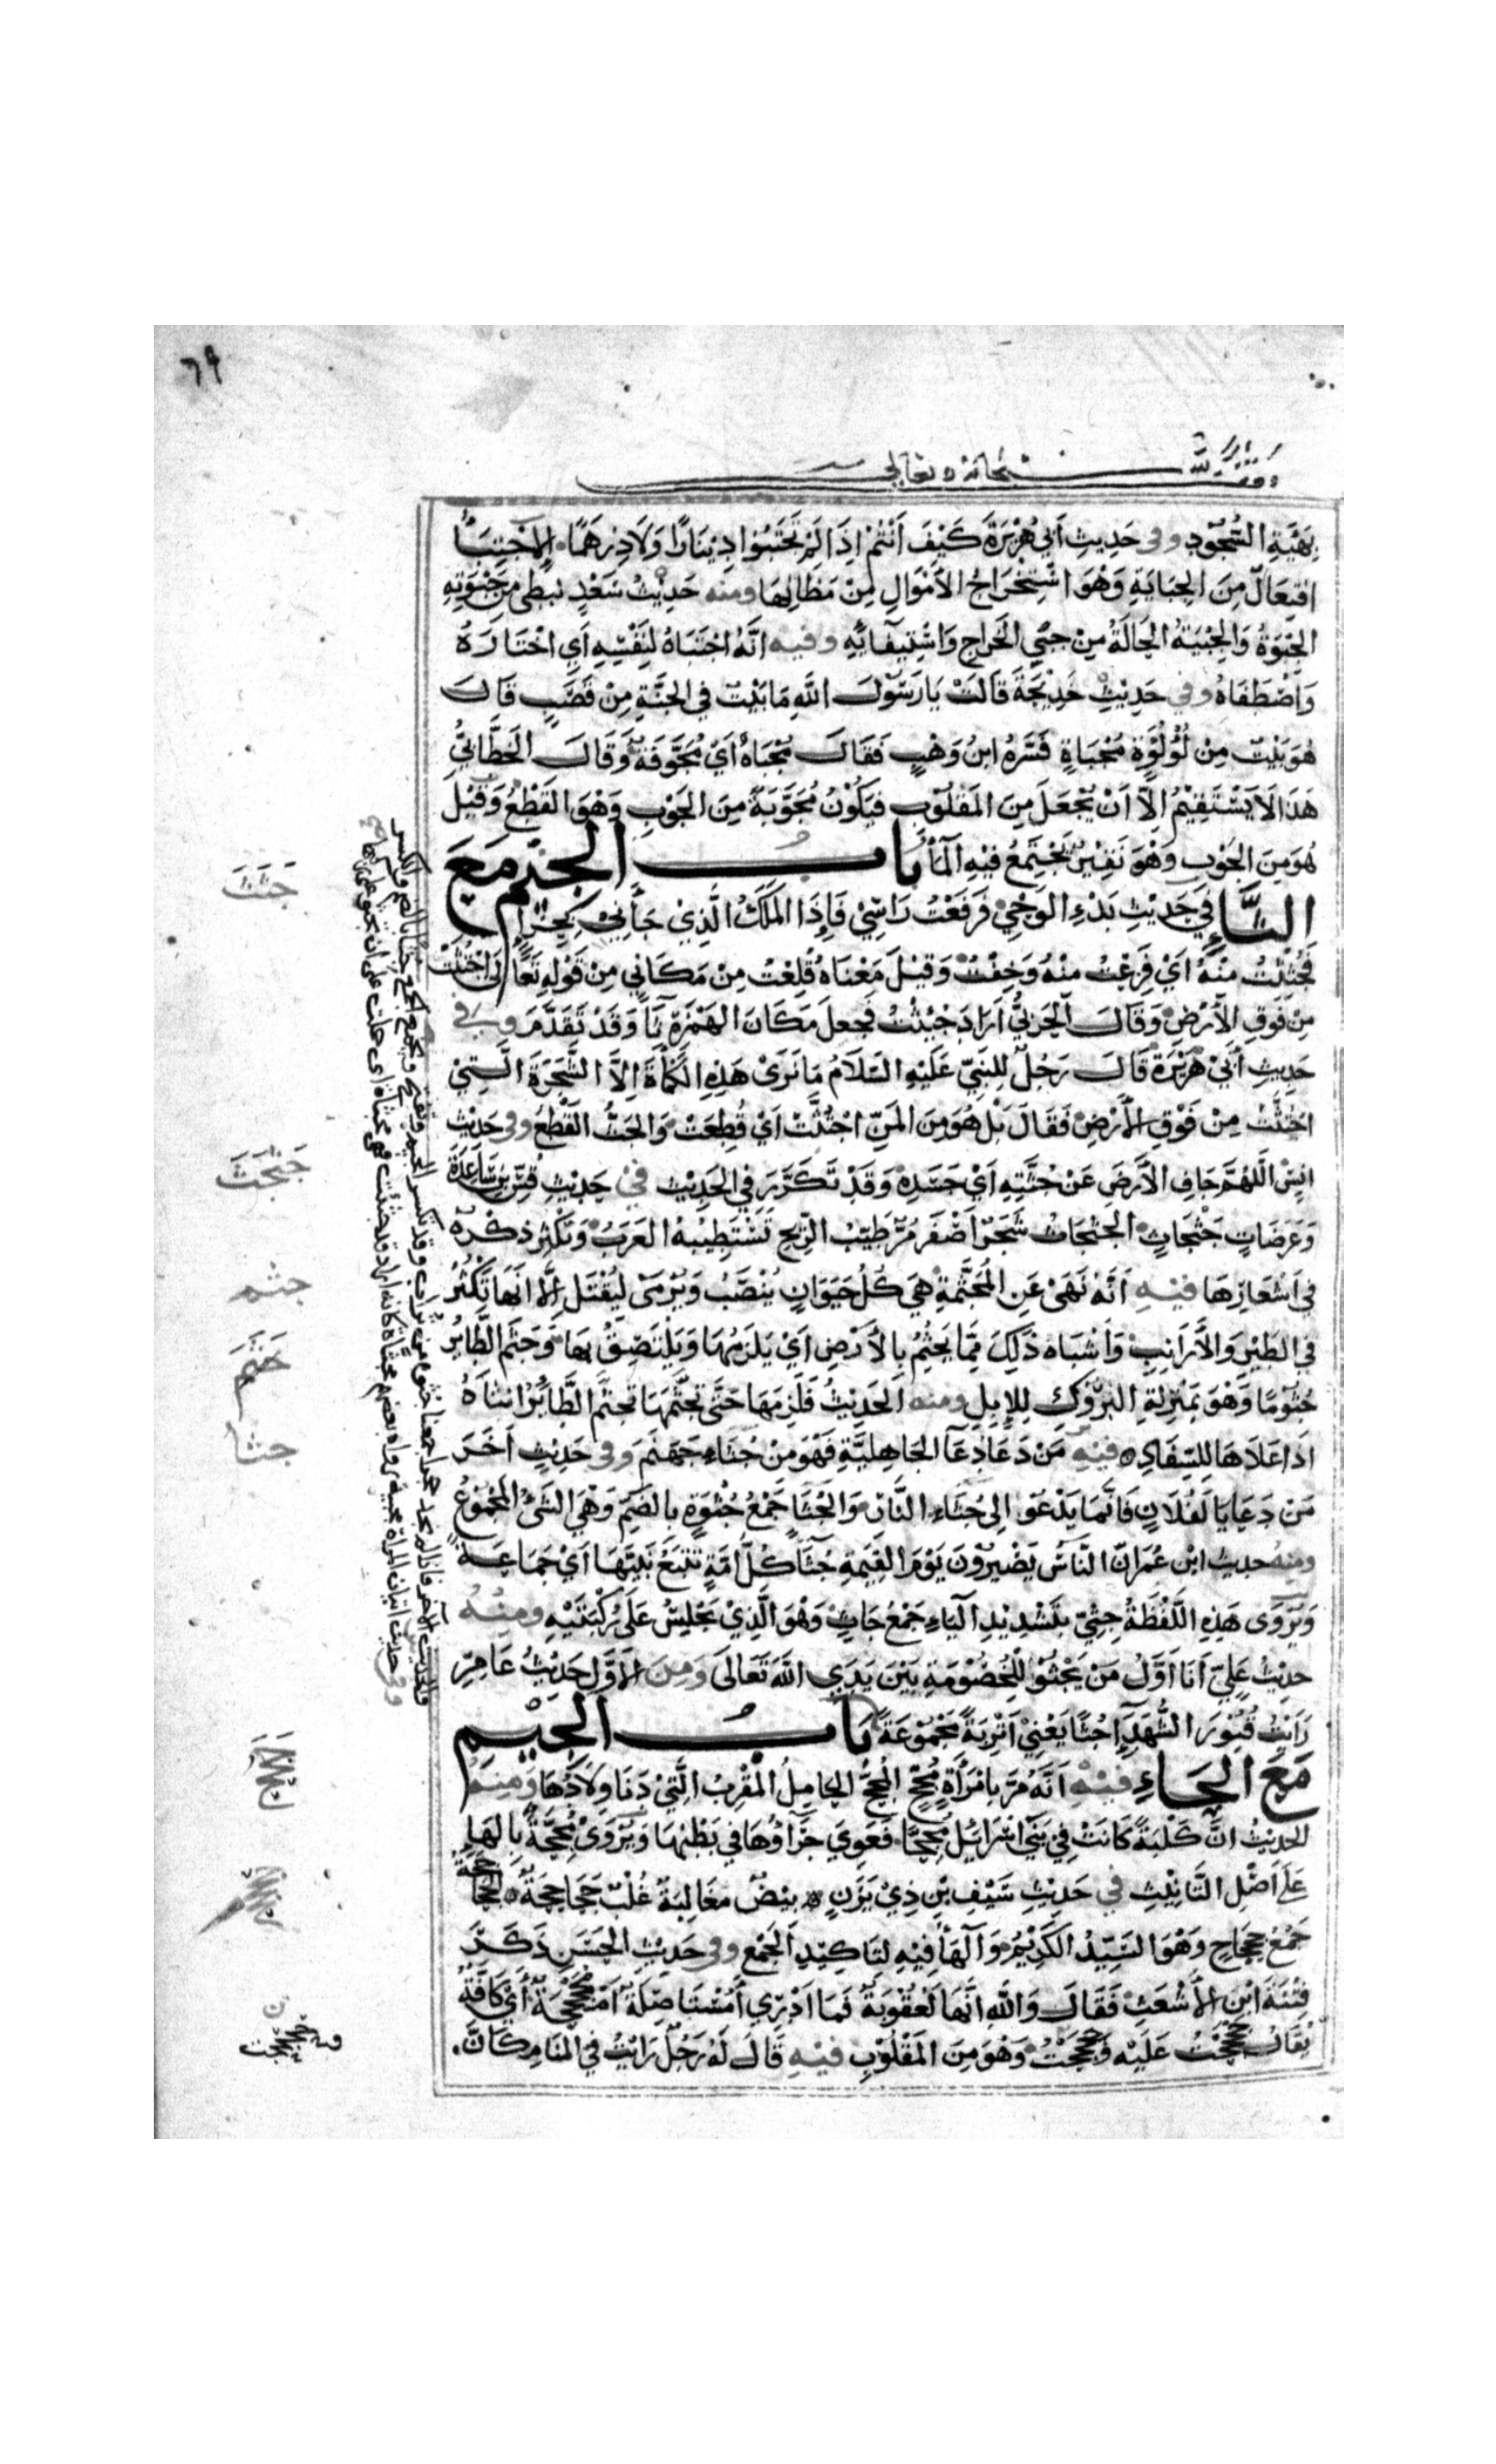 ٦٩
وقف لله سبحانه وتعالى
بِهَيْئَةِ السُّجُودِ وفي حَدِيثِ أَبِي هُرَيْرَةَ كَيْفَ أَنْتُمْ إِذَا لَمْ تَجْتَبُوا دِينَارًا وَلَا دِرْهَمًا الِاجْتِبَاءُ
افْتِعَالٌ مِنَ الجِبَايَةِ وَهُوَ اسْتِخْرَاجُ الأَمْوَالِ مِنْ مَظَانِّهَا ومنه حَدِيثُ سَعْدٍ نبطى من جِبْوَتِهِ
الجِبْوَةُ وَالجِبْيَةُ الحَالَةُ مِنْ جَبْيِ الخَرَاجِ وَاسْتِيفَائِهِ وفيه أَنَّهُ اجْتَبَاهُ لِنَفْسِهِ أَيِ اخْتَارَهُ
وَاصْطَفَاهُ وفي حَدِيثِ خَدِيجَةَ قَالَتْ يَا رَسُولَ اللَّهِ مَا بَيْتٌ فِي الجَنَّةِ مِنْ قَصَبٍ قَالَ
هُوَ بَيْتٌ مِنْ لُؤْلُؤَةٍ مُجَبَّاةٍ فَسَّرَهُ ابنُ وَهْبٍ فَقَالَ مُجَبَّاةٌ أَيْ مُجَوَّفَةٌ وَقَالَ الخَطَّابِيُّ
هَذَا لَا يَسْتَقِيمُ إِلَّا أَنْ يُجْعَلَ مِنَ المَقْلُوبِ فَيَكُونُ مُجَوَّبَةً مِنَ الجَوْبِ وَهُوَ القَطْعُ وَقِيلَ
هُوَ مِنَ الجَوْبِ وَهُوَ نَقِيرٌ يَجْتَمِعُ فِيهِ المَاءُ بَابُ الجِيمِ مَعَ
الثَّاءِ فِي حَدِيثِ بَدْءِ الوَحْيِ فَرَفَعْتُ رَأْسِي فَإِذَا المَلَكُ الَّذِي جَاءَنِي بِحِرَاءٍ
فَجُثِثْتُ مِنْهُ أَيْ فَزِعْتُ مِنْهُ وَخِفْتُ وَقِيلَ مَعْنَاهُ قُلِعْتُ مِنْ مَكَانِي مِنْ قَوْلِهِ تَعَالَى اجْتُثَّتْ
مِنْ فَوْقِ الأَرْضِ وَقَالَ الحَرْبِيُّ أَرَادَ جُئِثْتُ فَجَعَلَ مَكَانَ الهَمْزَةِ ثَاءً وَقَدْ تَقَدَّمَ وفي
حَدِيثِ أَبِي هُرَيْرَةَ قَالَ رَجُلٌ لِلنَّبِيِّ عَلَيْهِ السَّلَامُ مَا نَرَى هَذِهِ الكَمْأَةَ إِلَّا الشَّجَرَةَ الَّتِي
اجْتُثَّتْ مِنْ فَوْقِ الأَرْضِ فَقَالَ بَلْ هُوَ مِنَ المَنِّ اجْتُثَّتْ أَيْ قُطِعَتْ وَالجَثُّ القَطْعُ وفي حَدِيثِ
أَنَسٍ اللَّهُمَّ جَافِ الأَرْضَ عَنْ جُثَّتِهِ أَيْ جَسَدِهِ وَقَدْ تَكَرَّرَ فِي الحَدِيثِ فِي حَدِيثِ قُسِّ بْنِ سَاعِدَةَ
وَعَرَصَاتٍ جَثْجَاثٍ الجَثْجَاثُ شَجَرٌ أَصْفَرُ مُرٌّ طَيِّبُ الرِّيحِ تَسْتَطِيبُهُ العَرَبُ وَتُكْثِرُ ذِكْرَهُ
فِي أَشْعَارِهَا فِيهِ أَنَّهُ نَهَى عَنِ المُجَثَّمَةِ هِيَ كُلُّ حَيَوَانٍ يُنْصَبُ وَيُرْمَى لِيُقْتَلَ إِلَّا أَنَّهَا تَكْثُرُ
فِي الطَّيْرِ وَالأَرَانِبِ وَأَشْبَاهِ ذَلِكَ مِمَّا يَجْثِمُ بِالأَرْضِ أَيْ يَلْزَمُهَا وَيَلْتَصِقُ بِهَا وَجَثَمَ الطَّائِرُ
جُثُومًا وَهُوَ بِمَنْزِلَةِ البُرُوكِ لِلإِبِلِ ومنه الحَدِيثُ فَلَزِمَهَا حَتَّى تَجَثَّمَهَا تَجَثُّمَ الطَّائِرِ أُنْثَاهُ
إِذَا عَلَاهَا لِلسِّفَادِ فِيهِ مَنْ دَعَا دُعَاءَ الجَاهِلِيَّةِ فَهُوَ مِنْ جُثَاءِ جَهَنَّمَ وفي حَدِيثٍ آخَرَ
مَنْ دَعَا يَا لَفُلَانٍ فَإِنَّمَا يَدْعُو إِلَى جُثَاءِ النَّارِ وَالجُثَا جَمْعُ جُثْوَةٍ بِالضَّمِّ وَهِيَ الشَّيْءُ المَجْمُوعُ
ومنه حديث ابْنِ عُمَرَ أَنَّ النَّاسَ يَصِيرُونَ يَوْمَ القِيَمَةِ جُثًا كُلُّ أُمَّةٍ تَتْبَعُ نَبِيَّهَا أَيْ جَمَاعَةً
وَيُرْوَى هَذِهِ اللَّفْظَةُ جِثِيّ بِتَشْدِيدِ اليَاءِ جَمْعُ جَاثٍ وَهُوَ الَّذِي يَجْلِسُ عَلَى رُكْبَتَيْهِ ومِنْهُ
حَدِيثُ عَلِيٍّ أَنَا أَوَّلُ مَنْ يَجْثُو لِلْخُصُومَةِ بَيْنَ يَدَيِ اللَّهِ تَعَالَى وَمِنَ الأَوَّلِ حَدِيثُ عَامِرٍ
رَأَيْتُ قُبُورَ الشُّهَدَاءِ جُثًا يَعْنِي أَتْرِبَةً مَجْمُوعَةً بَابُ الجِيمِ
مَعَ الحَاءِ فِيهِ أَنَّهُ مَرَّ بِامْرَأَةٍ مُجِحٍّ المُجِحُّ الحَامِلُ المُقْرِبُ الَّتِي دَنَا وِلَادُهَا وَمِنْهُ
الحَدِيثُ إِنَّ كَلْبَةً كَانَتْ فِي بَنِي إِسْرَائِيلَ مُجِحًّا فَعَوَى جِرَاؤُهَا فِي بَطْنِهَا وَيُرْوَى مُجِحَّةً بِالهَاءِ
عَلَى أَصْلِ التَّأْنِيثِ فِي حَدِيثِ سَيْفِ بْنِ ذِي يَزَنٍ بِيضٌ مَغَالِبَةٌ غُلْبٌ جَحَاجِحَةٌ الجَحَاجِحَةُ
جَمْعُ جَحْجَاحٍ وَهُوَ السَّيِّدُ الكَرِيمُ وَالهَاءُ فِيهِ لِتَأْكِيدِ الجَمْعِ وفي حَدِيثِ الحَسَنِ ذَكَرَ
فِتْنَةَ ابْنِ الأَشْعَثِ فَقَالَ وَاللَّهِ إِنَّهَا لَعُقُوبَةٌ فَمَا أَدْرِي أَمُسْتَأْصِلَةٌ أَمْ مُجَحْجِحَةٌ أَيْ كَافَّةٌ
يُقَالُ جَحْجَحْتُ عَلَيْهِ وَحَجْحَجْتُ وَهُوَ مِنَ المَقْلُوبِ فِيهِ قَالَ لَهُ رَجُلٌ رَأَيْتُ فِي المَنَامِ كَأَنَّ
جَثَثَ
جَثْجَثَ
جثم
جَثَمَ
جثا